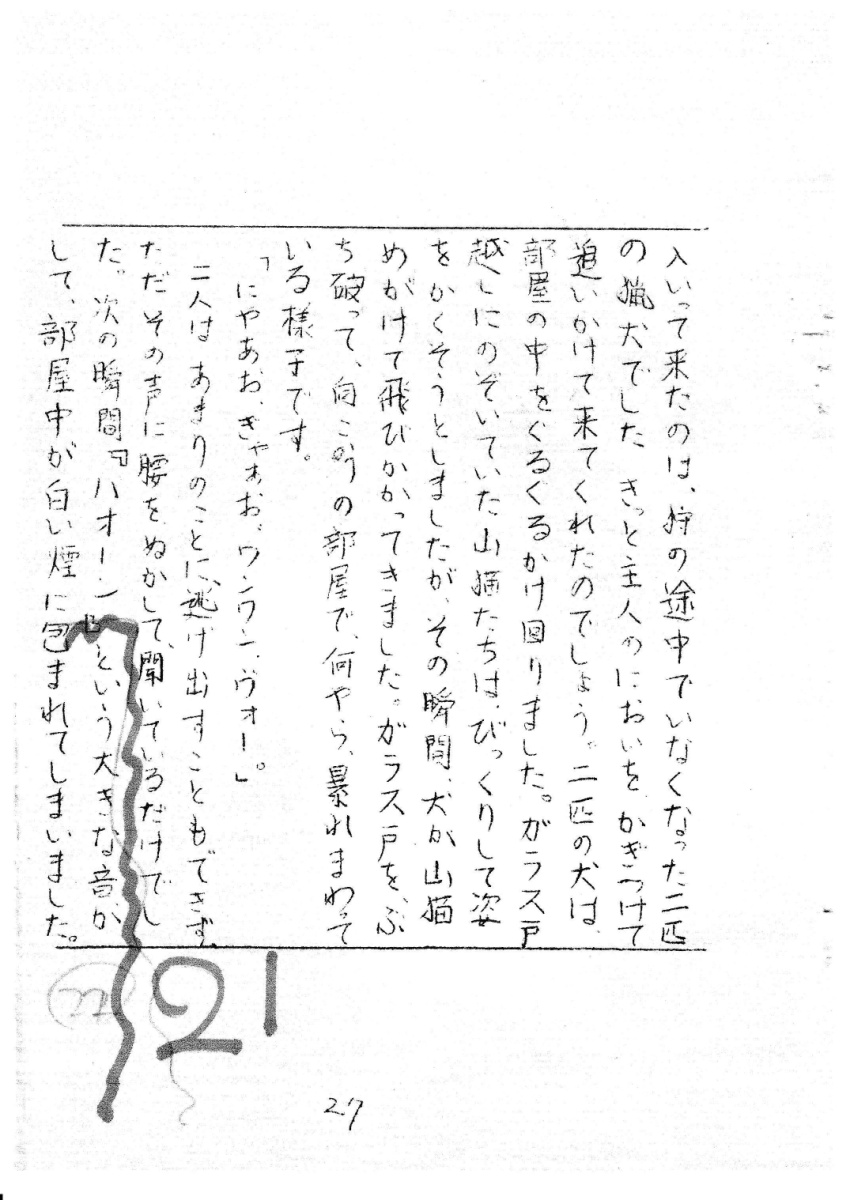 入いって来たのは、狩の途中でいなくなった二匹
の猟犬でした きっと主人のにおいを、かぎつけて
追いかけて来てくれたのでしょう。二匹の犬は、
部屋の中をぐるぐるかけ回りました。ガラス戸
越しにのぞいていた山猫たちは、びっくりして姿
をかくそうとしましたが、その瞬間、犬が山猫
めがけて飛びかかってきました。ガラス戸を、ぶ
ち破って、向こうの部屋で、何やら、暴れまわって
いる様子です。
「にゃあお、きゃぁお、ワンワン、ヴォー。」
二人はあまりのことに、逃げ出すこともできず、
ただその声に腰をぬかして、聞いているだけでし
た。次の瞬間『ハオー！』という大きな音が
して、部屋中が白い煙に包まれてしまいました。
21
27